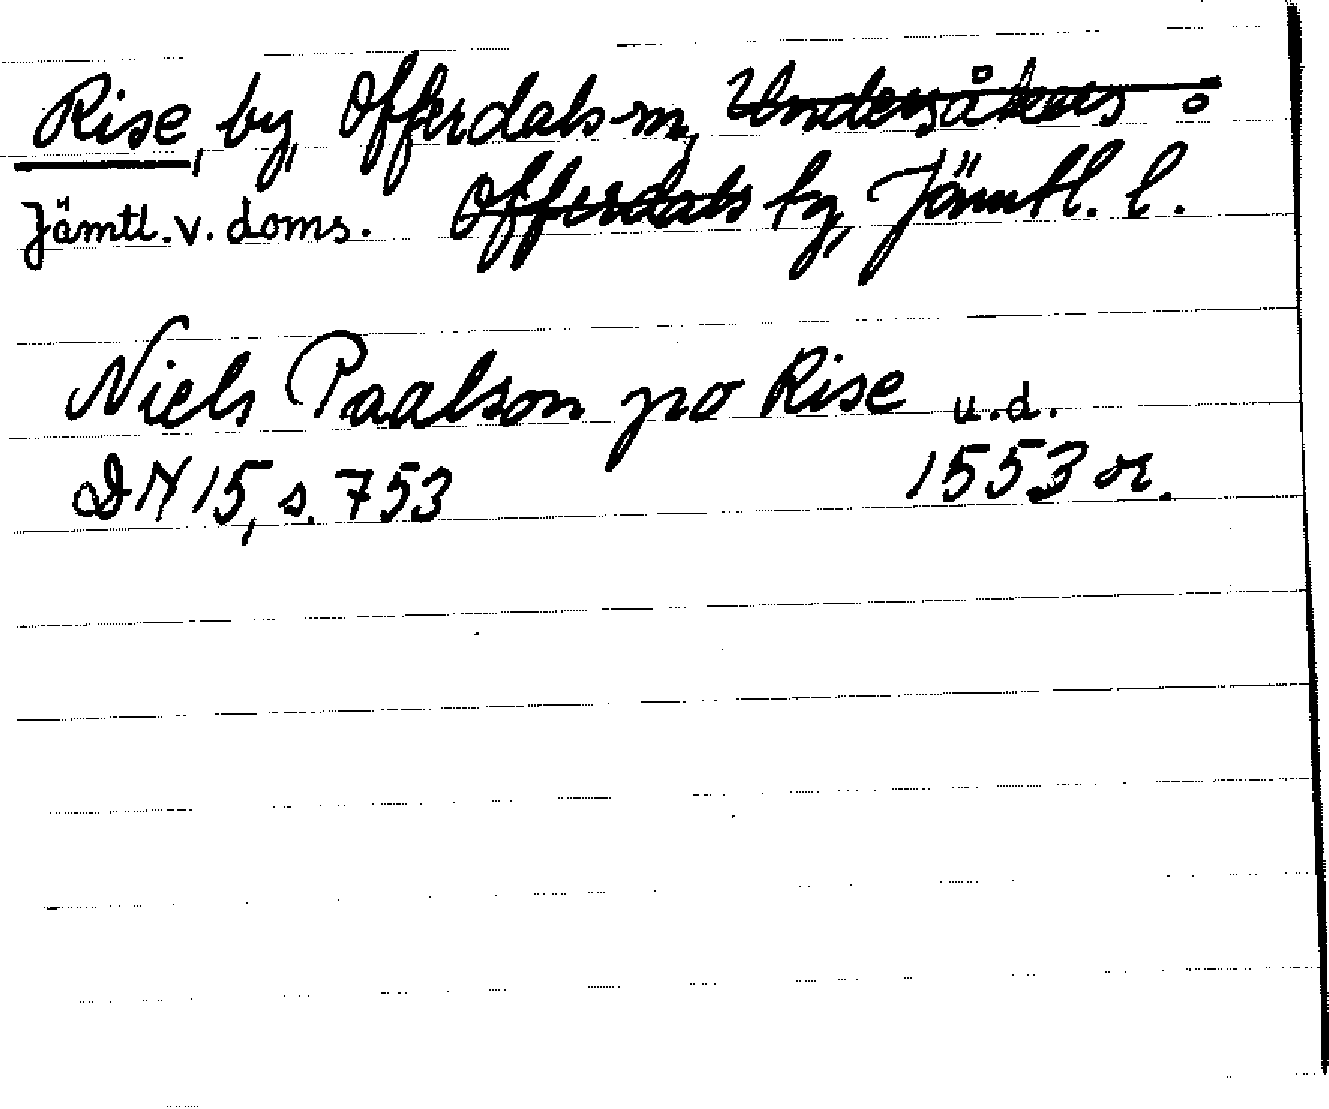 Rise, by, Offerdals sn, Undersåkers o
Jämtl. v. doms. Offerdals tg, Jämtl. l.
Niels Paalson po Rise u.d.
DN 15, s. 753 1553 or.